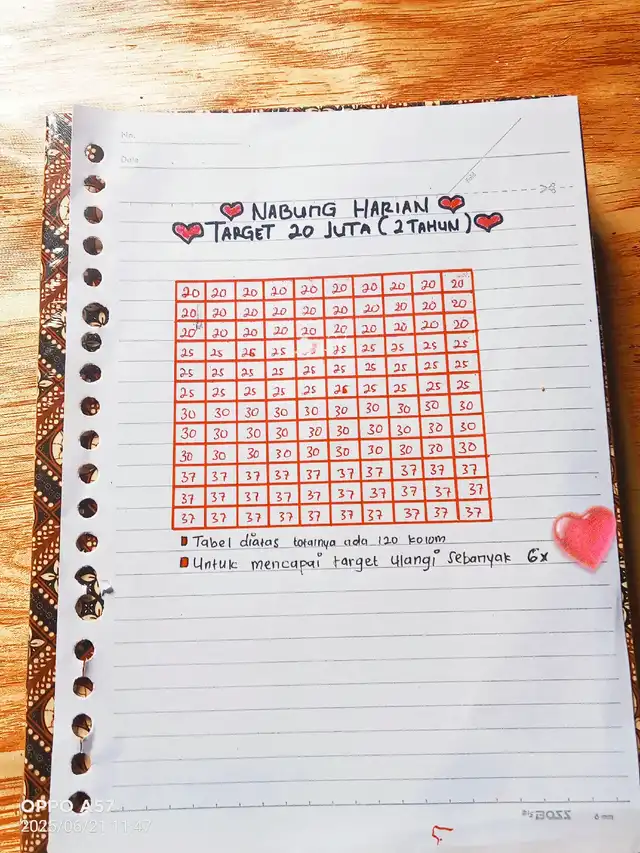 No.
Date
NABUNG HARIAN
TARGET 20 JUTA (2 TAHUN)
20 20 20 20 20 20 20 20 20 20
20 20 20 20 20 20 20 20 20 20
20 20 20 20 20 20 20 20 20 20
25 25 25 25 25 25 25 25 25
25 25 25 25 25 25 25 25 25 25
25 25 25 25 25 25 25 25 25 25
30 30 30 30 30 30 30 30 30 30
30 30 30 30 30 30 30 30 30 30
30 30 30 30 30 30 30 30 30 30
37 37 37 37 37 37 37 37 37 37
37 37 37 37 37 37 37 37 37 37
37 37 37 37 37 37 37 37 37 37
Tabel diatas totalnya ada 120 kolom
Untuk mencapai target ulangi sebanyak 6x
OPPO A57
2025/06/21 11:47
BOSS 6 mm